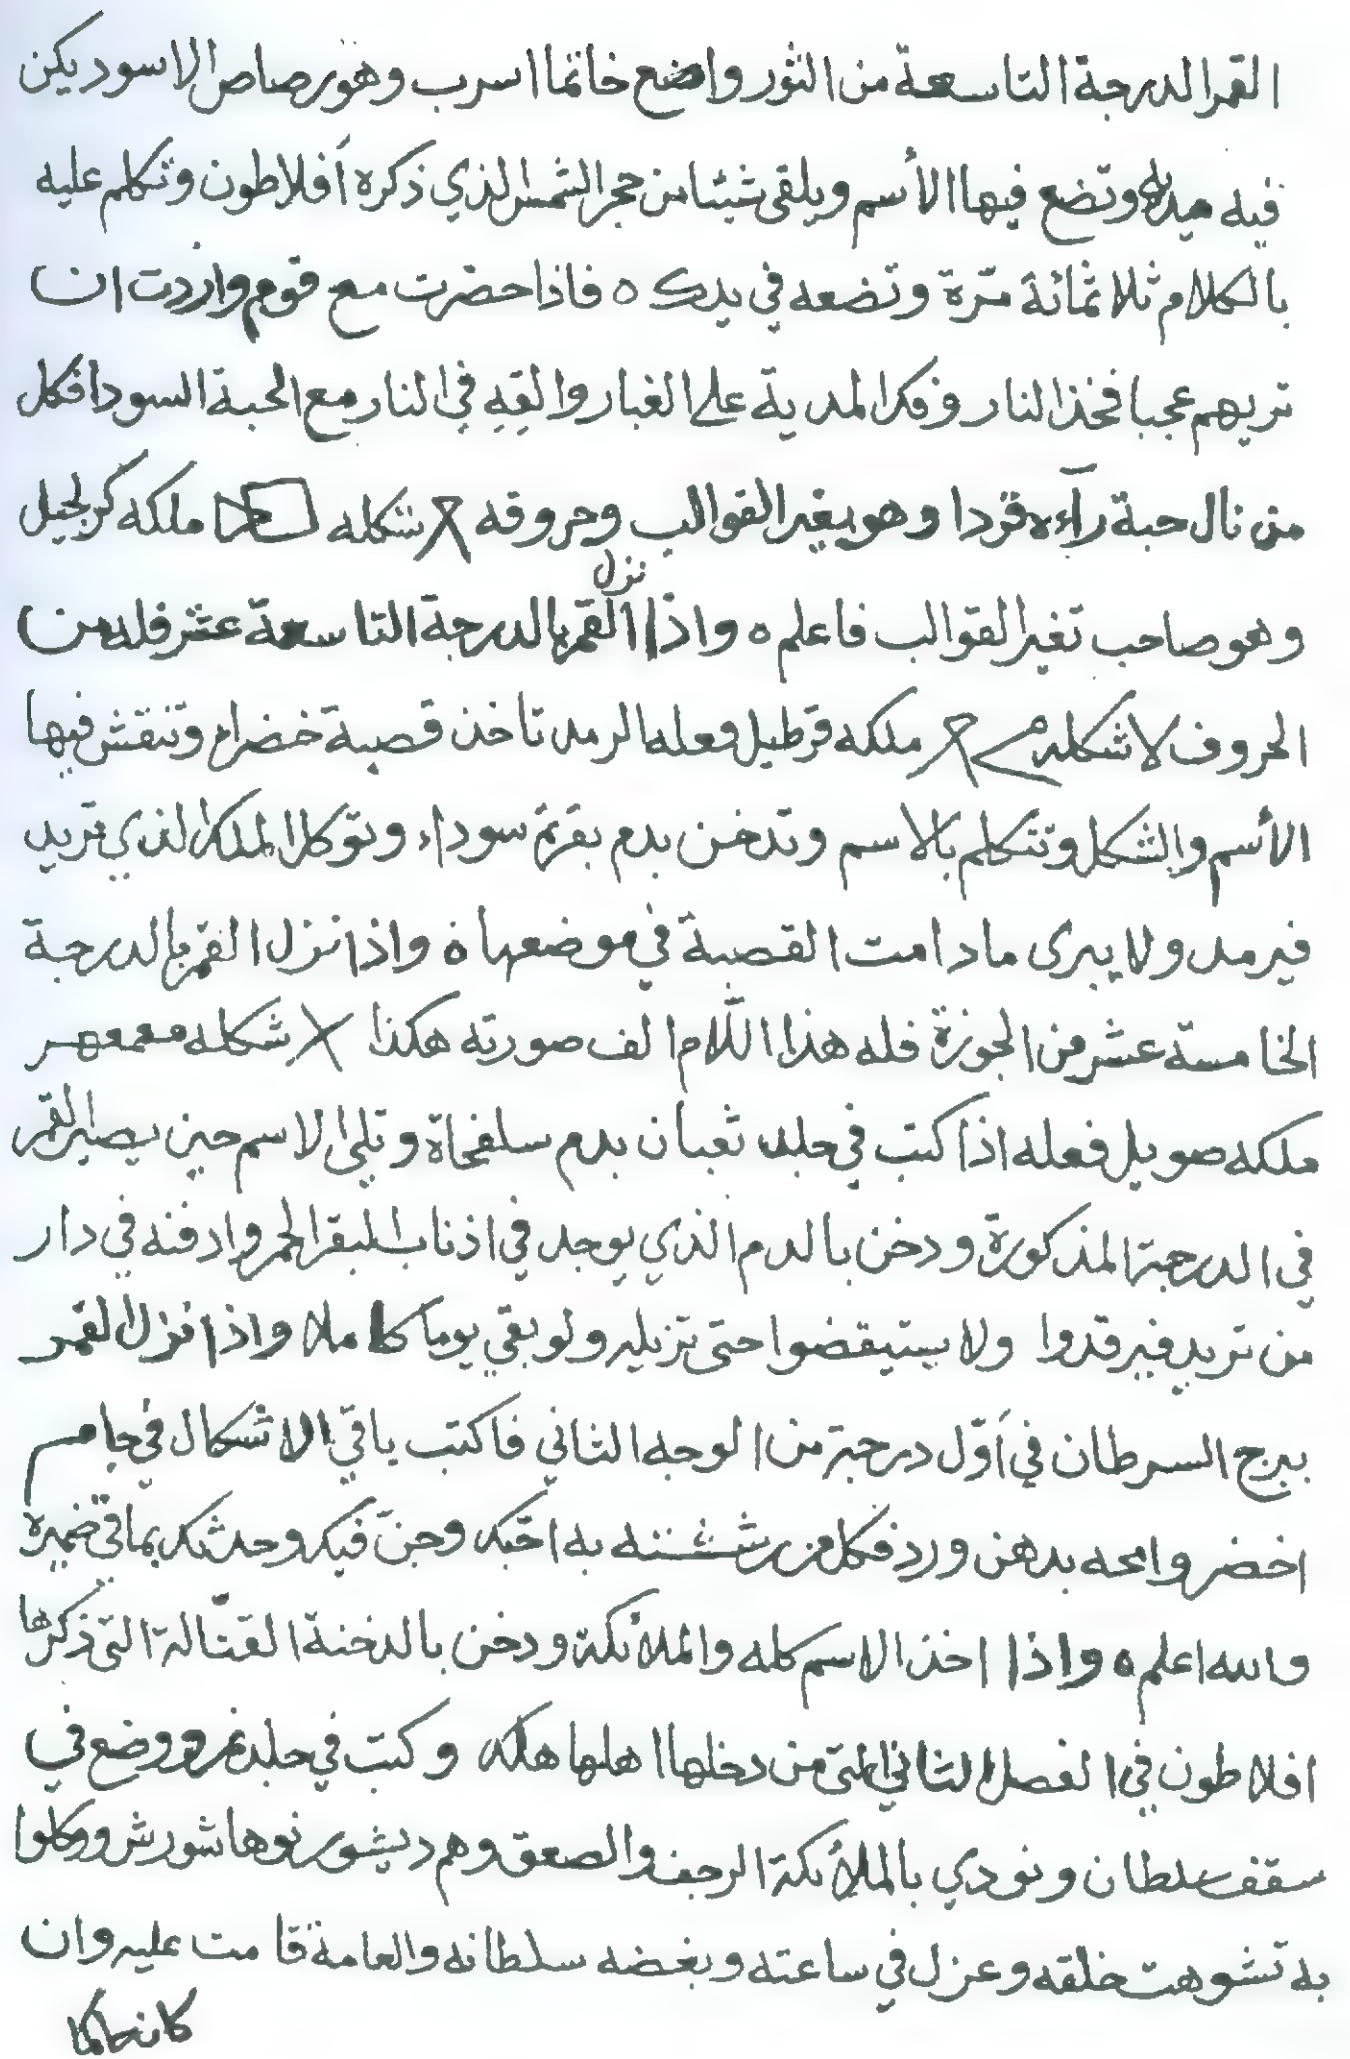 القمر الدرجة التاسعة من الثور واضع خاتما اسرب وهو رصاص الاسود يكن
فيه ميداه وتضع فيها الأسم ويلقى شيئا من حجر الشمس الذي ذكره أفلاطون وتكلم عليه
بالكلام ثلاثمائة مرّة وتضعه في يدك ه فاذا حضرت مع قوم واردت ان
تريهم عجبا فخذ النار وفك المدية على الغبار والقِهِ في النار مع الحبة السودا فكل
من نال حبة رآءه قردا وهو يغير القوالب وحروفه شكله ملكه كربلحيل
وهو صاحب تغير القوالب فاعلم ه واذا نزل القمر بالدرجة التاسعة عشر فله من
الحروف لا شكله ملكه قرطيل وفعله الرمد تاخذ قصبة خضراء وتنقش فيها
الأسم والشكل وتتكلم بالاسم وتدخن بدم بقرة سوداء وتوكل الملك الذي تريد
فيرمد ولا يبرى مادامت القصبة في موضعها ه واذا نزل القمر بالدرجة
الخامسة عشر من الجوزة فله هذا اللّام الف صورته هكذا شكله معمعهر
ملكه صويل فعله اذا كتب في جلد ثعبان بدم سلفحاة وتلى الاسم حين يصير القمر
في الدرجة المذكورة ودخن بالدم الذي يوجد في اذناب البقر الحمر وادفنه في دار
من تريد فيرقدوا ولا يستيقضوا حتى تزيله ولو بقي يوما كاملا واذا نزل القمر
ببرج السرطان في أوّل درجة من الوجه الثاني فاكتب باقي الاشكال في جام
اخضر وامحه بدهن ورد فكل من رششته به احّبك وجنّ فيك وحدثك بما في ضميره
والله اعلم ه واذا اخذ الاسم كله والملأئكة ودخن بالدخنة القتّالة التي ذكرها
افلاطون في الفصل الثاني التي من دخلها اهلها هلكه وكتب في جلد نمر ووضع في
سقف سلطان ونودي بالملأئكة الرجف والصعق وهم ديشورنوهاشورش ووكلوا
به تشوهت خلقه وعزل في ساعته وبغضه سلطانه والعامة قامت عليه وان
كان حاكما